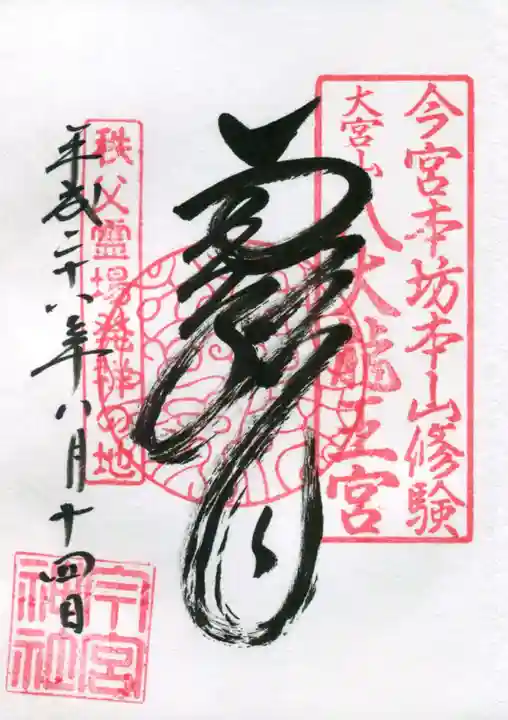 今宮本坊本山修験
大宮山八大龍王宮
秩父霊場発祥の地
平成二十八年八月十四日
今宮
神社